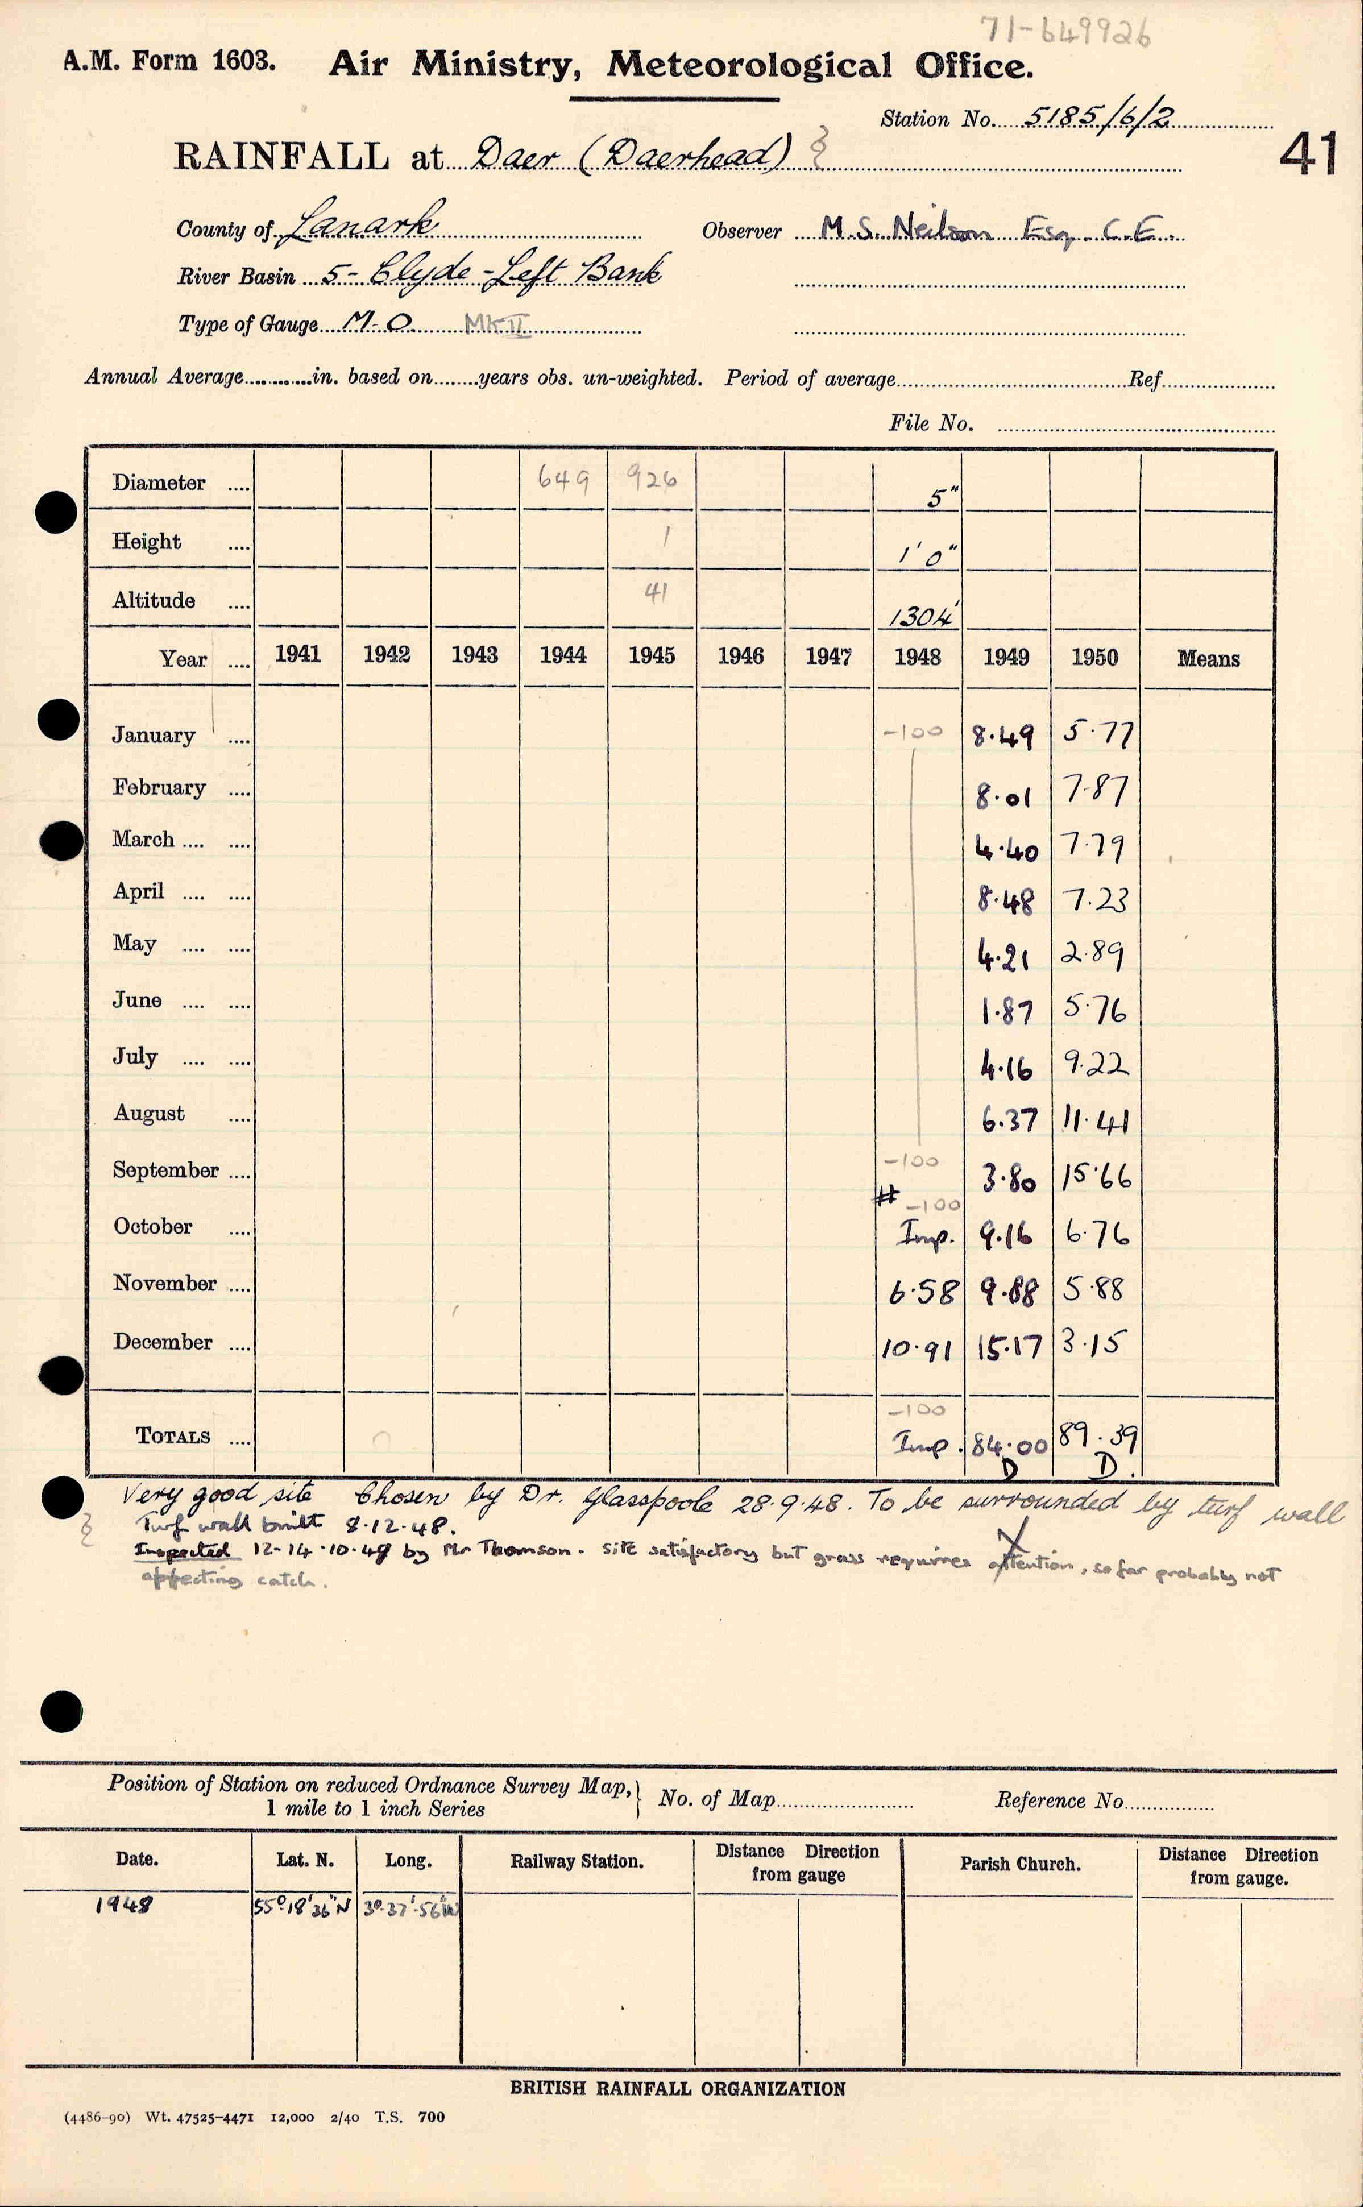 71-649926
A.M. Form 1603. Air Ministry, Meteorological Office.
Station No. 5185/6/2
41
RAINFALL at Daer (Daerhead)
County of Lanark Observer M.S. Neilson Esq. C.E.
River Basin 5- Clyde - Left Bank
Type of Gauge M.O. MK II
Annual Average............in. based on........years obs. un-weighted. Period of average............ Ref............
File No. ............
Diameter .... 649 926 5"
Height .... 1 1' 0"
Altitude .... 41 1304'
Year .... 1941 1942 1943 1944 1945 1946 1947 1948 1949 1950 Means
January .... -100 8.49 5.77
February .... 8.01 7.87
March .... .... 4.40 7.79
April .... .... 8.48 7.23
May .... .... 4.21 2.89
June .... .... 1.87 5.76
July .... .... 4.16 9.22
August .... 6.37 11.41
September .... -100 3.80 15.66
# -100
October .... Imp. 9.16 6.76
November .... 6.58 9.88 5.88
December .... 10.91 15.17 3.15
-100
TOTALS .... Imp. 84.00 89.39
D D.
Very good site Chosen by Dr. Glasspoole 28.9.48. To be surrounded by turf wall
Turf wall built 8.12.48.
Inspected 12-14.10.49 by Mr Thomson. Site satisfactory but grass requires attention, so far probably not
affecting catch.
Position of Station on reduced Ordnance Survey Map, } No. of Map............ Reference No............
1 mile to 1 inch Series
Date. Lat. N. Long. Railway Station. Distance Direction from gauge Parish Church. Distance Direction from gauge.
1948 55° 18' 36" N 3° 37' 56" W
BRITISH RAINFALL ORGANIZATION
(4486-90) Wt. 47525-4471 12,000 2/40 T.S. 700